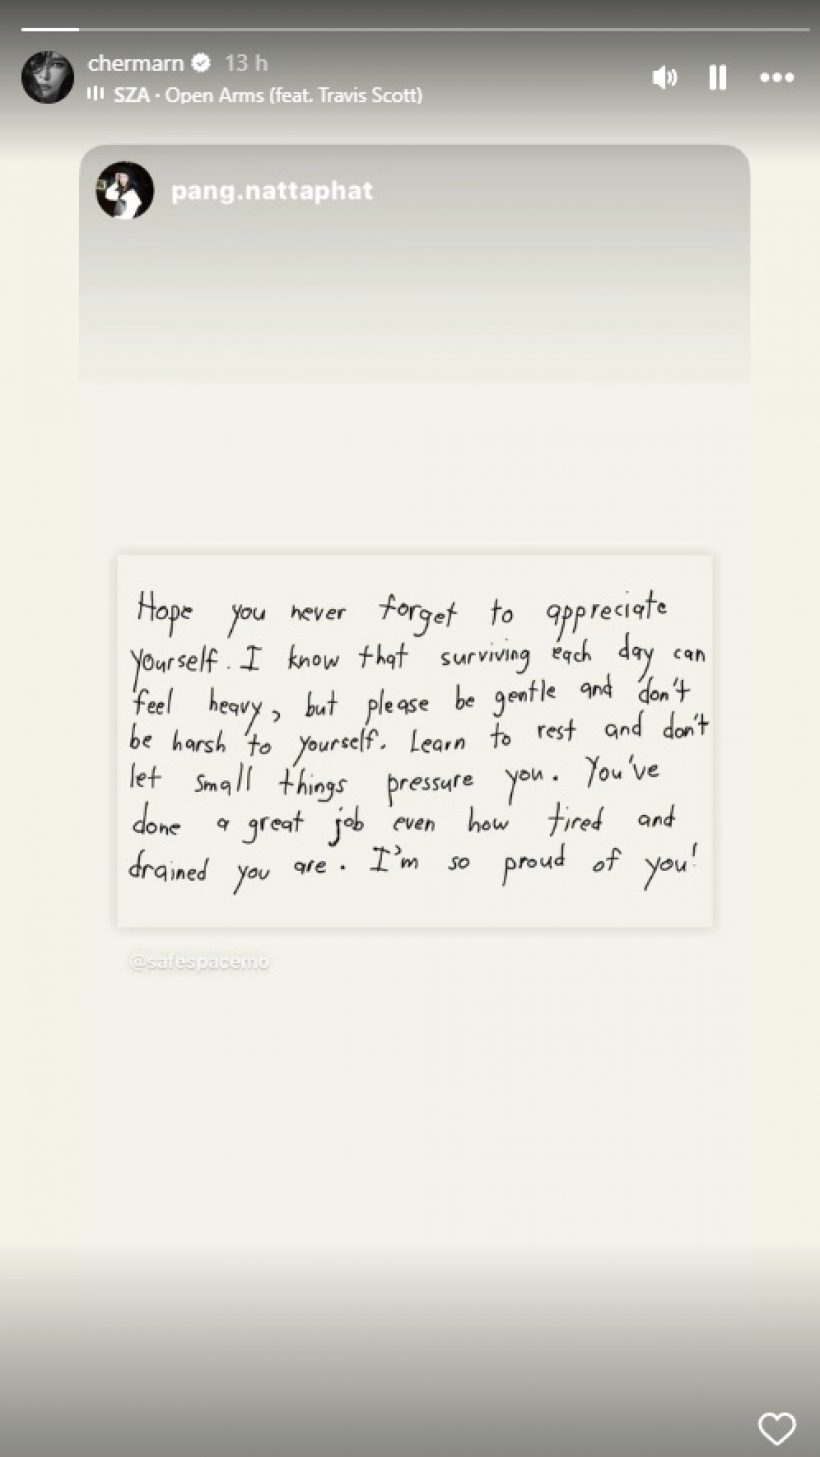 chermarn 13 h
SZA · Open Arms (feat. Travis Scott)
pang.nattaphat
Hope you never forget to appreciate
yourself. I know that surviving each day can
feel heavy, but please be gentle and don't
be harsh to yourself. Learn to rest and don't
let small things pressure you. You've
done a great job even how tired and
drained you are. I'm so proud of you!
@safespacemo